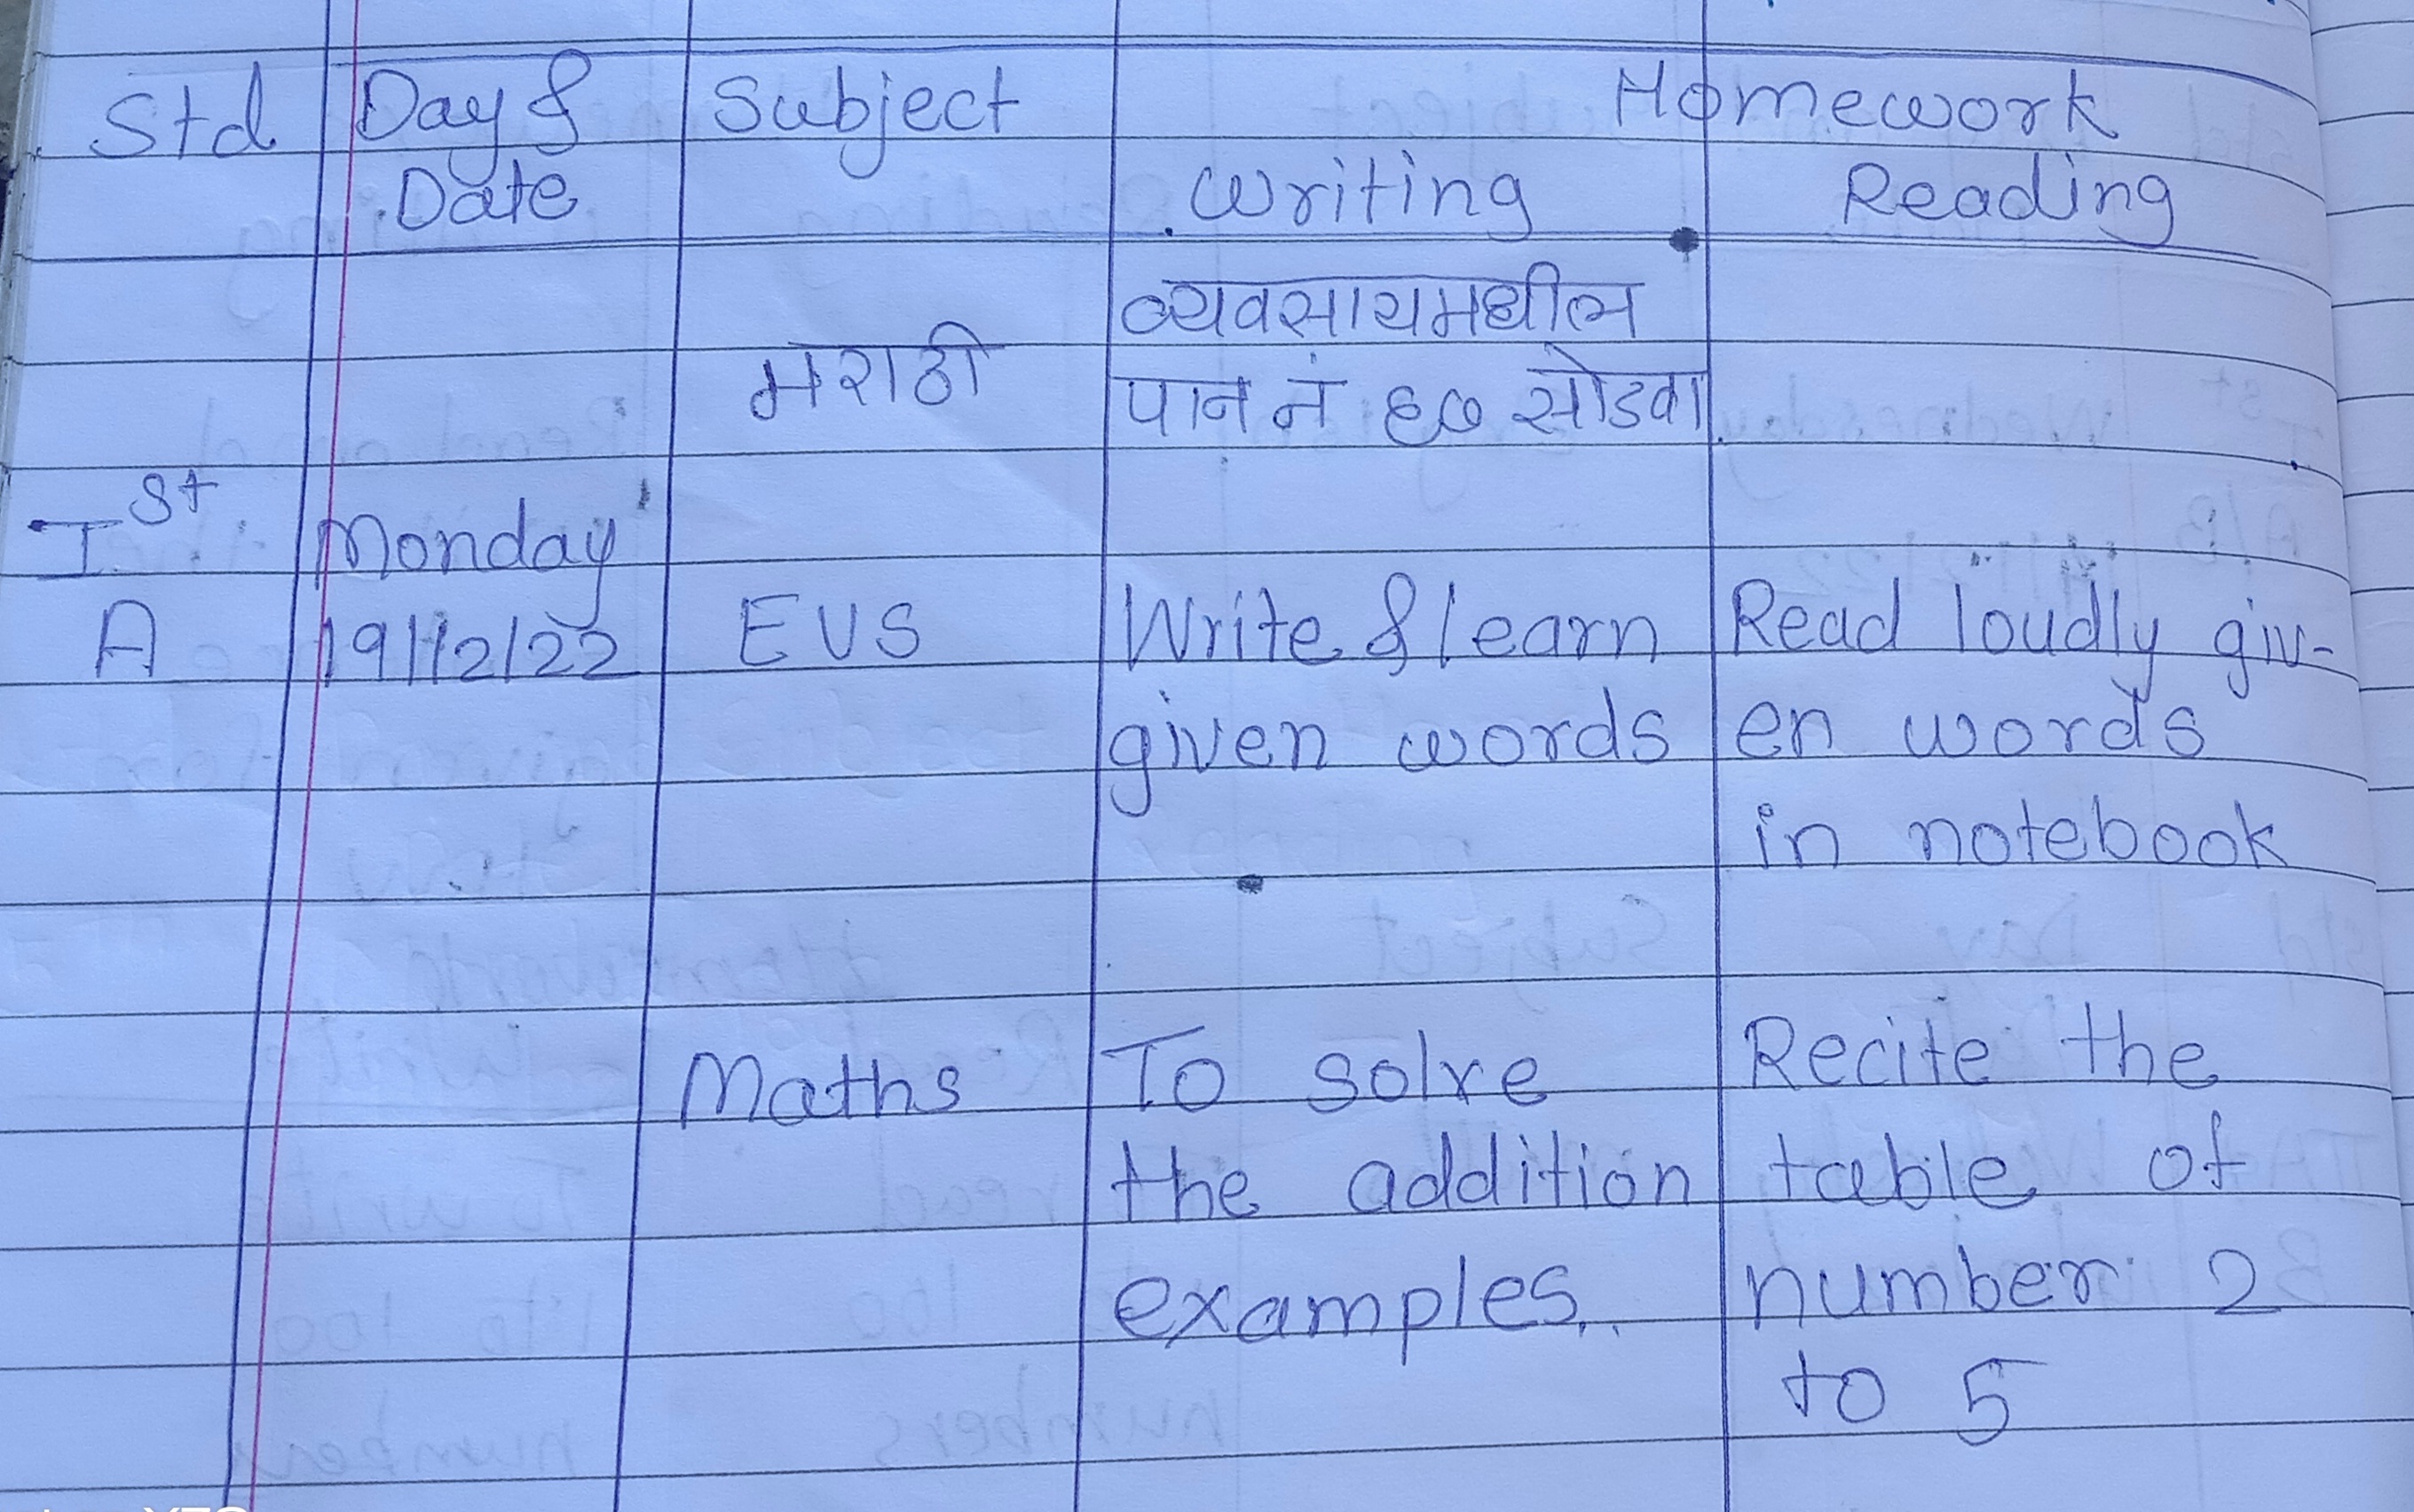 Std Day & Subject Homework
Date Writing Reading
व्यवसायमधील
मराठी पान नं ६७ सोडवा
Ist Monday
A 19/12/22 EVS Write & learn Read loudly giv-
given words en words
in notebook
Maths To solve Recite the
the addition table of
examples. number 2
to 5